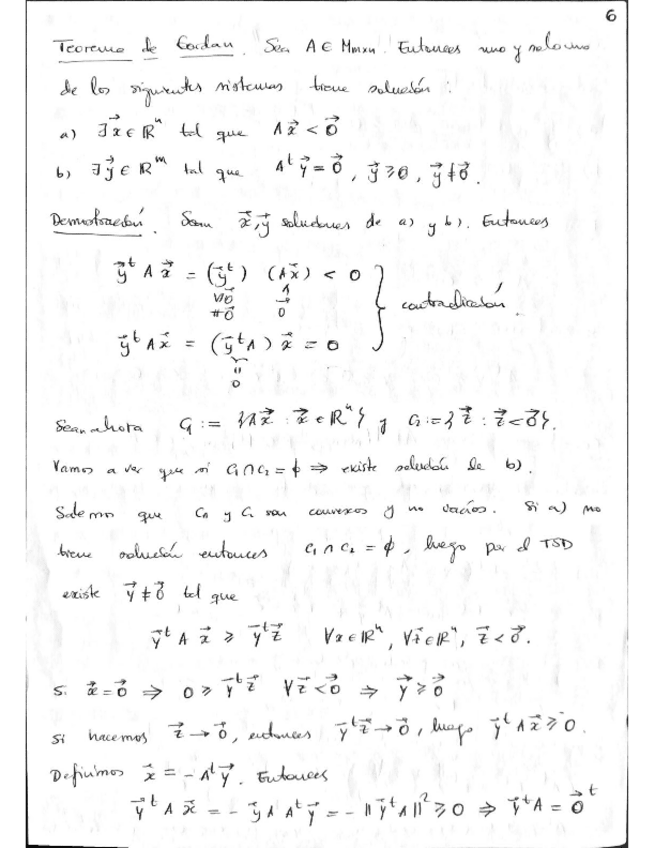 6
Teorema de Gordan. Sea A ∈ Mmxn. Entonces uno y solo uno
de los siguientes sistemas tiene solución:
a) ∃x⃗ ∈ ℝⁿ tal que Ax⃗ < 0⃗
b) ∃y⃗ ∈ ℝᵐ tal que Aᵗy⃗ = 0⃗, y⃗ ≥ 0, y⃗ ≠ 0⃗.
Demostración. Sean x⃗, y⃗ soluciones de a) y b). Entonces
y⃗ᵗ A x⃗ = (y⃗ᵗ) (Ax⃗) < 0
V/0⃗ ∧
≠0⃗ 0⃗
contradicción.
y⃗ᵗ A x⃗ = (y⃗ᵗA) x⃗ = 0
=
0
Sean ahora C₁ := {Ax⃗ : x⃗ ∈ ℝⁿ} y C₂ := {z⃗ : z⃗ < 0⃗}.
Vamos a ver que si C₁ ∩ C₂ = ϕ ⇒ existe solución de b).
Sabemos que C₁ y C₂ son convexos y no vacíos. Si a) no
tiene solución entonces C₁ ∩ C₂ = ϕ, luego por el TSD
existe y⃗ ≠ 0⃗ tal que
y⃗ᵗ A x⃗ ≥ y⃗ᵗz⃗ ∀x ∈ ℝⁿ, ∀z⃗ ∈ ℝⁿ, z⃗ < 0⃗.
Si x⃗ = 0⃗ ⇒ 0 ≥ y⃗ᵗz⃗ ∀z⃗ < 0⃗ ⇒ y⃗ ≥ 0⃗
Si hacemos z⃗ → 0⃗, entonces y⃗ᵗz⃗ → 0⃗, luego y⃗ᵗAx⃗ ≥ 0.
Definimos x⃗ = -Aᵗy⃗. Entonces
y⃗ᵗ A x⃗ = - y⃗ A Aᵗ y⃗ = - ||y⃗ᵗA||² ≥ 0 ⇒ y⃗ᵗA = 0⃗ᵗ